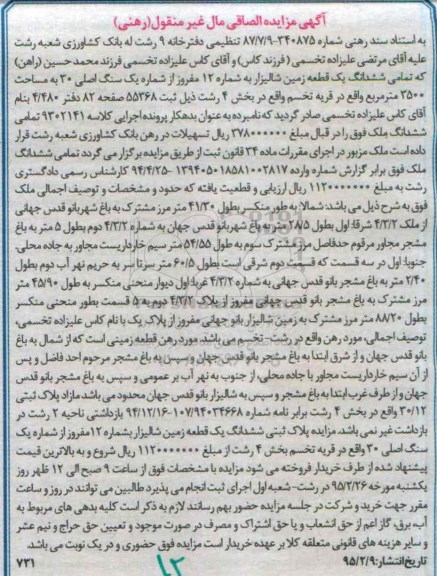 آگهی مزایده الصاقی مال غیر منقول(رهنی)
به استناد سند رهنی شماره ۳۴۰۸۷۵-۸۷/۷/۹ تنظیمی دفترخانه ۹ رشت له بانک کشاورزی شعبه رشت
علیه آقای مرتضی علیزاده تخسمی (فرزند کاس) و آقای کاس علیزاده تخسمی فرزند محمد حسین (راهن)
که تمامی ششدانگ یک قطعه زمین شالیزار به شماره ۱۲ مفروز از شماره یک سنگ اصلی ۳۰ به مساحت
۳۵۰۰ مترمربع واقع در قریه تخسم واقع در بخش ۴ رشت ذیل ثبت ۵۵۳۶۸ صفحه ۸۲ دفتر ۴/۴۸۰ بنام
آقای کاس علیزاده تخسمی صادر گردید که نامبرده به عنوان بدهکار پرونده اجرایی کلاسه ۹۳۰۲۱۴۱ تمامی
ششدانگ ملک فوق را در قبال مبلغ ۳۷۸۰۰۰۰۰۰ ریال تسهیلات در رهن بانک کشاورزی شعبه رشت قرار
داده است ملک مزبور در اجرای مقررات ماده ۳۴ قانون ثبت از طریق مزایده برگزار می گردد تمامی ششدانگ
ملک فوق برابر گزارش شماره وارده ۱۳۹۴۰۵۰۱۸۵۸۱۰۰۲۸۱۷-۹۴/۴/۲۵ کارشناس رسمی دادگستری
رشت به مبلغ ۱۱۲۰۰۰۰۰۰۰ ریال ارزیابی و قطعیت یافته که حدود و مشخصات و توصیف اجمالی ملک
فوق به شرح ذیل می باشد: شمالا به طور منکسر بطول ۴۱/۳۰ متر مرز مشترک به باغ شهربانو قدس جهانی
از ملک ۴/۳/۲ شرقا: اول بطول ۲۸۵ متر به باغ شهربانو قدس جهان به شماره ۴/۳/۲ دوم بطول ۵ متر به باغ
مشجر مجاور مرقوم حدفاصل مرز مشترک سوم به طول ۵۴/۵۵ متر سیم خارداریست مجاور به جاده محلی.
جنوبا: اول در سه قسمت که قسمت دوم شرقی است بطول ۶۰/۵ متر سرتاسر به حریم نهر آب دوم بطول
۲/۴۰ متر به باغ مشجر بانو قدس جهانی به شماره ۴/۳/۲ غربا: اول دیوار منحنی منکسر به طول ۴۵/۹۰ متر
مرز مشترک به باغ مشجر بانو قدس جهانی مفروز از پلاک ۴/۳/۲ دوم به ۵ قسمت بطور منحنی منکسر
بطول ۸۸/۲۰ متر مرز مشترک به زمین شالیزار بانو جهانی مفروز از پلاک یک با نام کاس علیزاده تخسمی،
توصیف اجمالی، مورد رهن واقع در رشت- تخسم می باشد. مورد رهن قطعه زمینی است که از شمال به باغ
بانو قدس جهان و از شرق ابتدا به باغ مشجر بانو قدس جهان و سپس به باغ مشجر مرحوم احد فاضل و پس
از آن سیم خارداریست مجاور با جاده محلی، از جنوب به نهر آب بر عمومی و سپس به باغ مشجر بانو قدس
جهان و از طرف غرب ابتدا به باغ مشجر و سپس به شالیزار بانو قدس جهان محدود می باشد مازاد پلاک ثبتی
۳۰/۱۲ واقع در بخش ۴ رشت برابر نامه شماره ۱۰۷/۹۴۰۳۴۶۶۸-۹۴/۱۲/۱۶ بازداشتی ناحیه ۲ رشت در
بازداشت غیر نمی باشد. مزایده پلاک ثبتی ششدانگ یک قطعه زمین شالیزار بشماره ۱۲ مفروز از شماره یک
سنگ اصلی ۳۰ واقع در قریه تخسم بخش ۴ رشت از مبلغ ۱۱۲۰۰۰۰۰۰۰ ریال شروع و به بالاترین قیمت
پیشنهاد شده از طرف خریدار فروخته می شود مزایده با مشخصات فوق از ساعت ۹ صبح الی ۱۲ ظهر روز
یکشنبه مورخه ۹۵/۲/۲۶ در رشت- شعبه اول اجرای ثبت انجام می پذیرد طالبین می توانند در روز و ساعت
مقرر جهت خرید و شرکت در جلسه مزایده حضور بهم رسانند لازم به ذکر است کلیه بدهی های مربوط به
آب، برق، گاز اعم از حق انشعاب و یا حق اشتراک و مصرف در صورت موجود و تعیین حق حراج و نیم عشر
و سایر هزینه های قانونی متعلقه کلا بر عهده خریدار است مزایده فوق حضوری و در یک نوبت می باشد.
تاریخ انتشار: ۹۵/۲/۹
۷۳۱
۱۲